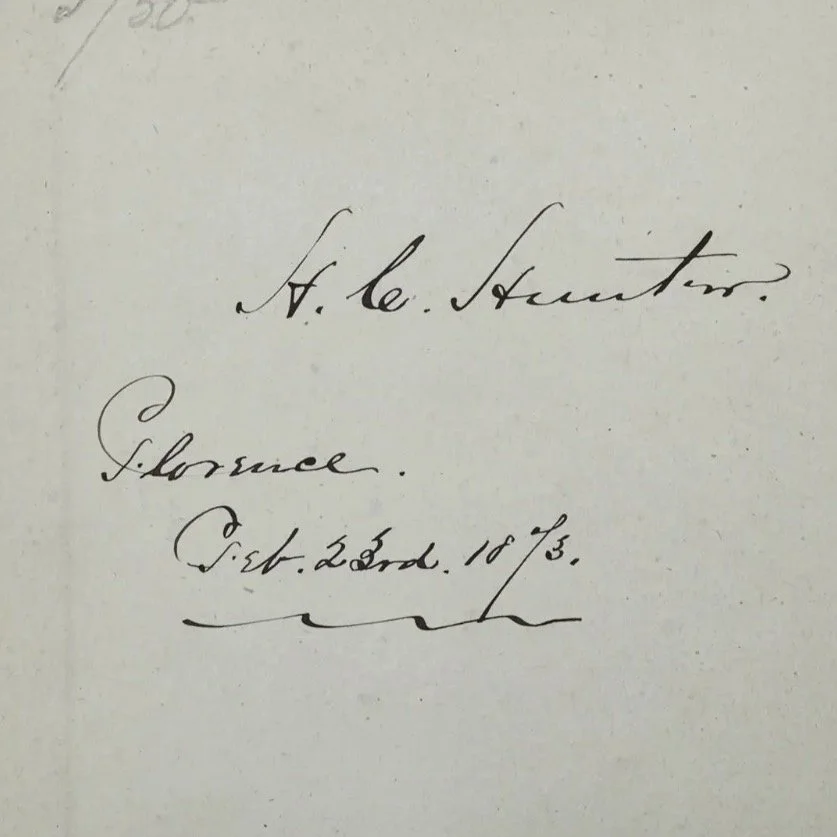 H. C. Hunter.
Florence.
Feb. 23rd. 1873.